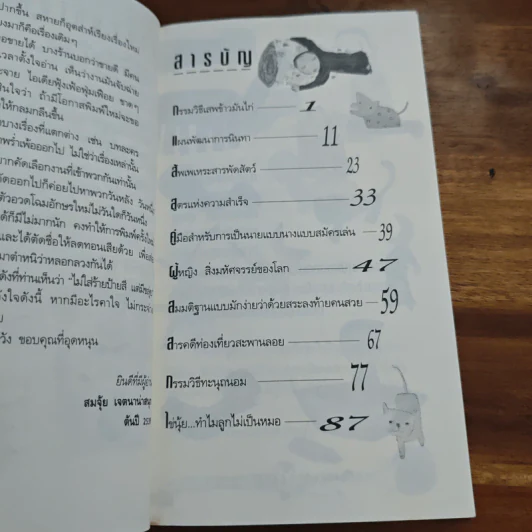 ปากชื้น สหายก็อุตส่าห์เรียงเรื่องใหม่
มาก็คือเรื่องเดิมๆ
ขายได้ บางร้านบอกว่าขายดี มีคน
เวลาตั้งใจอ่าน เห็นว่างานมันจับฉ่าย
โอเดียฟุ้งเฟ้อฟุ่มเฟือย
ถ้ามีโอกาสพิมพ์ใหม่จะขอ
ให้กลมกลืนขึ้น
บางเรื่องที่แตกต่าง เช่น บทละคร
เพ้อออกไป ไม่ใช่ว่าเรื่องเหล่านั้น
คัดเลือกงานที่เข้าพวกกันเท่านั้น
ออกไปก็ค่อยไปหาพวกวันหลัง วันหนึ่ง
ตัวอวดโฉมอักษรใหม่ไม่วันใดก็วันหนึ่ง
ได้ก็มีไม่มากนัก คงทำให้การพิมพ์ครั้งใหม่
และได้ตัดชื่อให้ลดทอนเสียด้วย
มาตำหนิว่าหลอกลวงกันได้
ดังที่ท่านเห็นว่า "ไม่ใส่ร้ายป้ายสี
ตั้งใจดังนี้ หากมีอะไรคาใจ
หวัง ขอบคุณที่อุดหนุน
ยินดีที่มีผู้อ่าน
สมจุ้ย เจตนาน่าสนุก
ต้นปี
สารบัญ
กรรมวิธีเสพข้าวมันไก่ 1
แผนพัฒนาการนินทา 11
สี่พเพเหระสารพัดสัตว์ 23
สูตรแห่งความสำเร็จ 33
คู่มือสำหรับการเป็นนายแบบนางแบบสมัครเล่น 39
ผู้หญิง สิ่งมหัศจรรย์ของโลก 47
สมมติฐานแบบมักง่ายว่าด้วยสระลงท้ายคนสวย 59
สารคดีท่องเที่ยวสะพานลอย 67
กรรมวิธีทะนุถนอม 77
ไข่นุ้ย...ทำไมลูกไม่เป็นหมอ 87